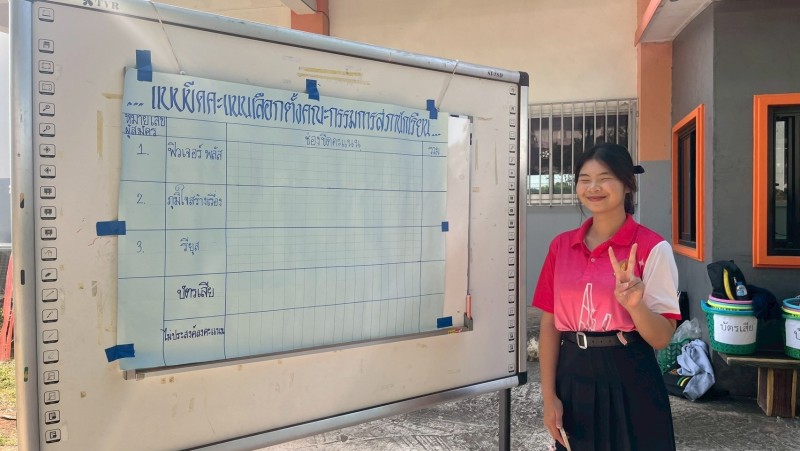 แบบขีดคะแนนเลือกตั้งคณะกรรมการสภานักเรียน
หมายเลข
ผู้สมัคร
ช่องขีดคะแนน
รวม
1. ฟิวเจอร์ พลัส
2. ภูมิใจสร้างเรื่อง
3. ชียุส
บัตรเสีย
ไม่ประสงค์ลงคะแนน
บัตรเสีย